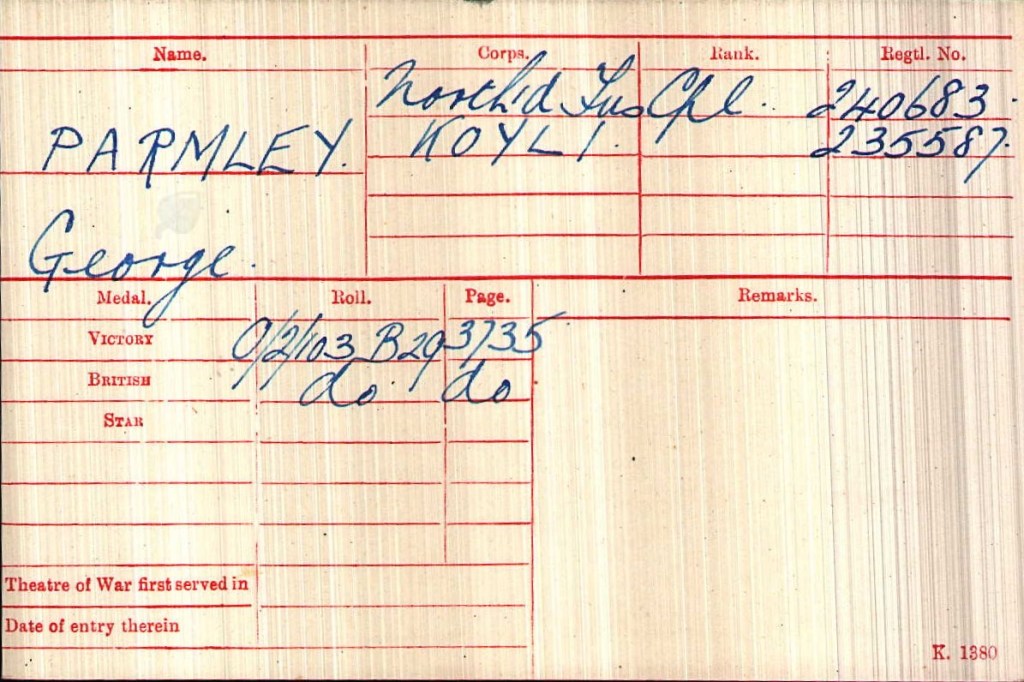 Name. Corps. Rank. Regtl. No.
North'd Fus Cpl. 240683.
PARMLEY. KOYLI. 235587.
George.
Medal. Roll. Page. Remarks.
VICTORY O/2/103 B29 3735
BRITISH do do
STAR
Theatre of War first served in
Date of entry therein
K. 1380